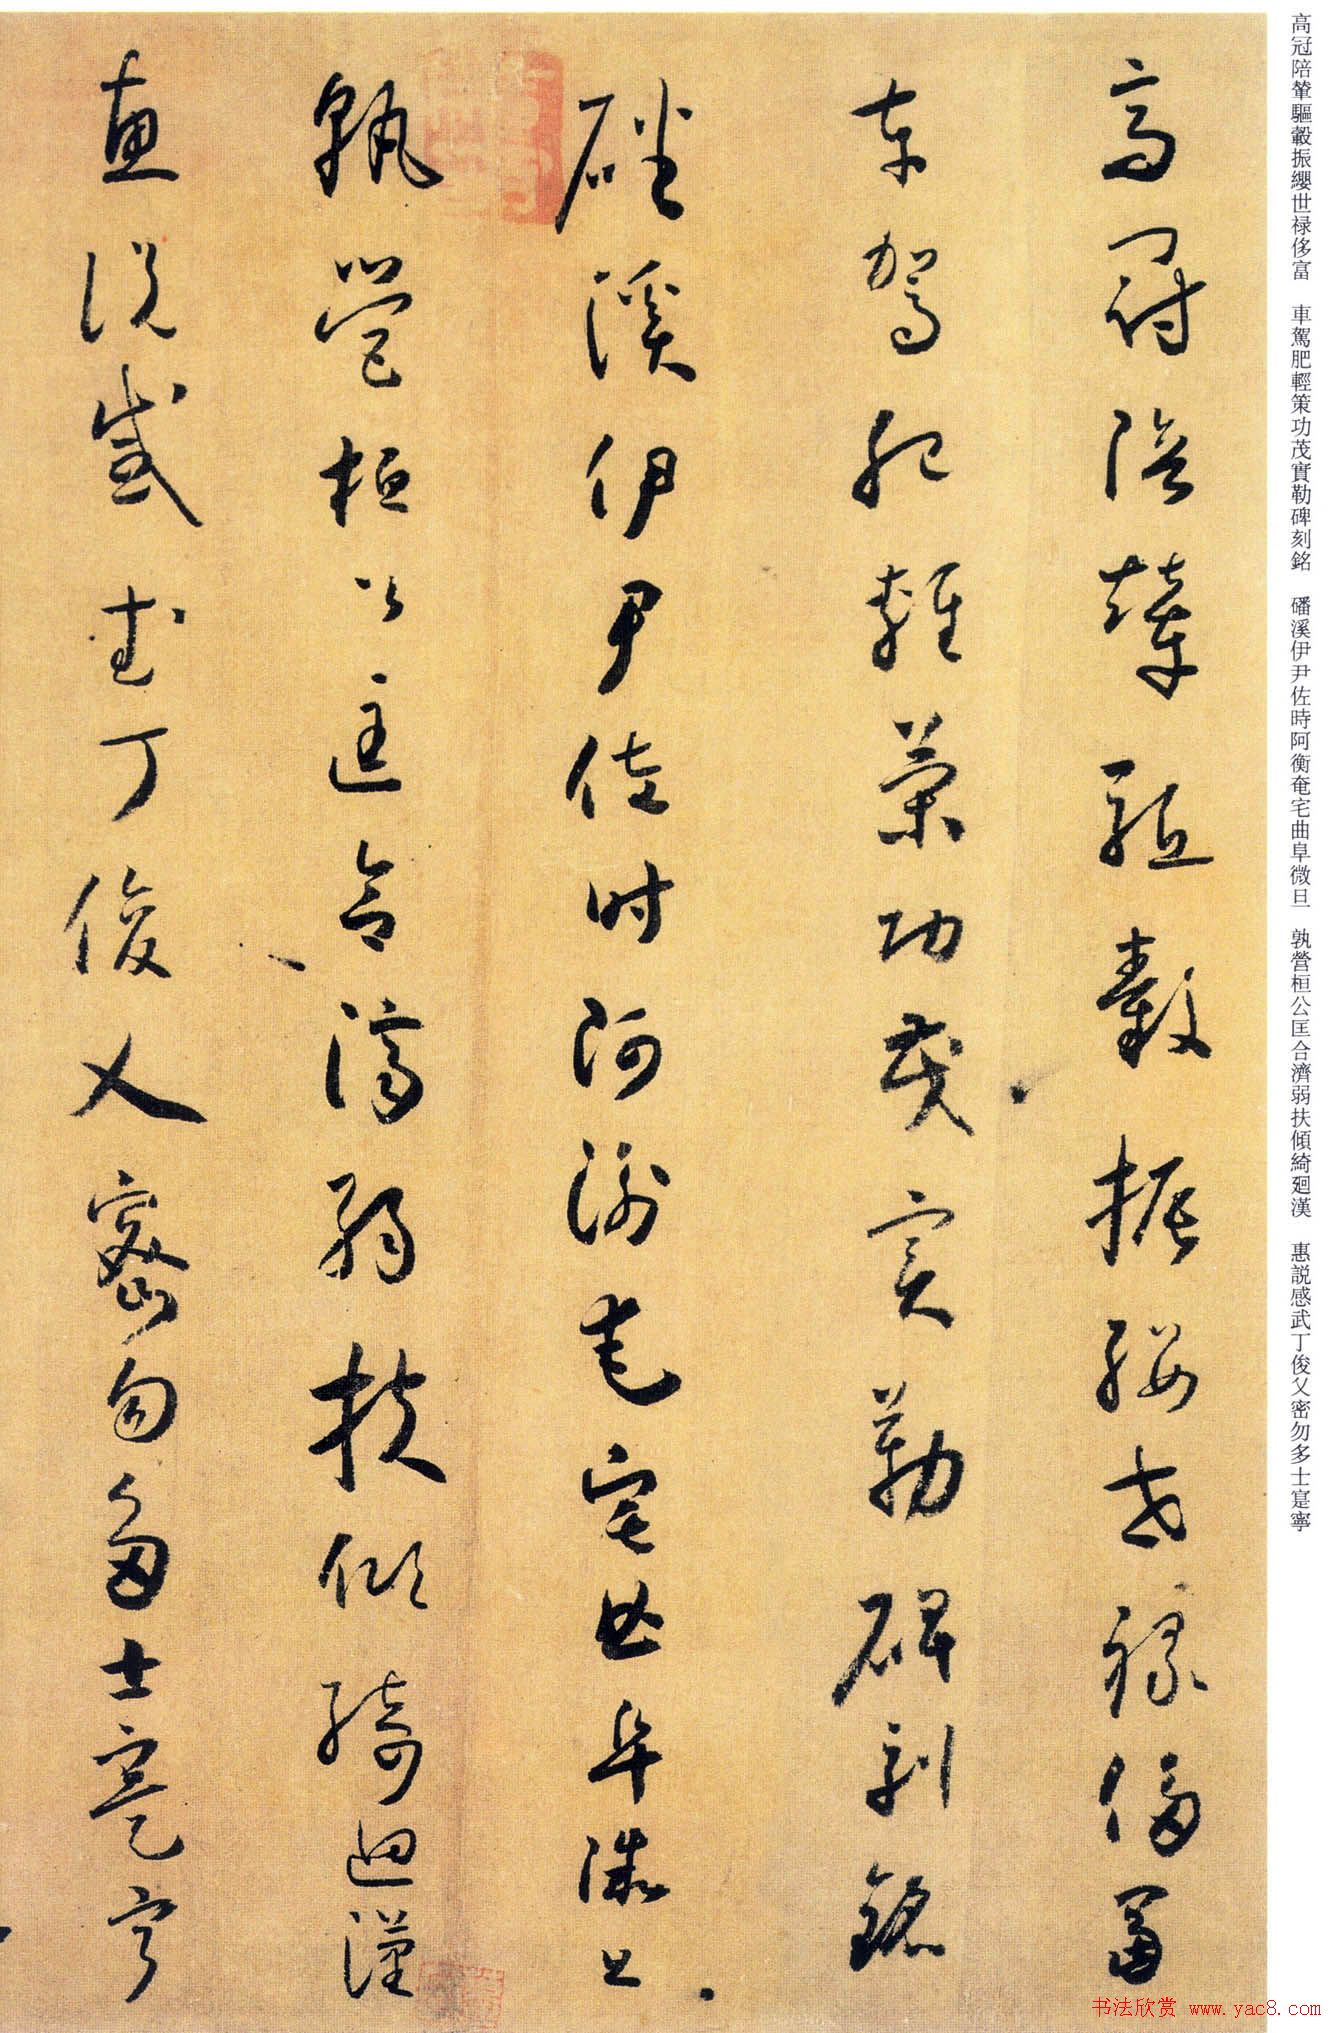 高冠陪輦驅轂振纓世禄侈富　車駕肥輕策功茂實勒碑刻銘　磻溪伊尹佐時阿衡奄宅曲阜微旦　孰營桓公匡合濟弱扶傾綺廻漢　惠説感武丁俊乂密勿多士寔寧
高冠陪輦驅轂振纓世禄侈富
車駕肥輕策功茂實勒碑刻銘
磻溪伊尹佐時阿衡奄宅曲阜微旦
孰營桓公匡合濟弱扶傾綺迴漢
惠説感武丁俊乂密勿多士寔寧
书法欣赏 www.yac8.com